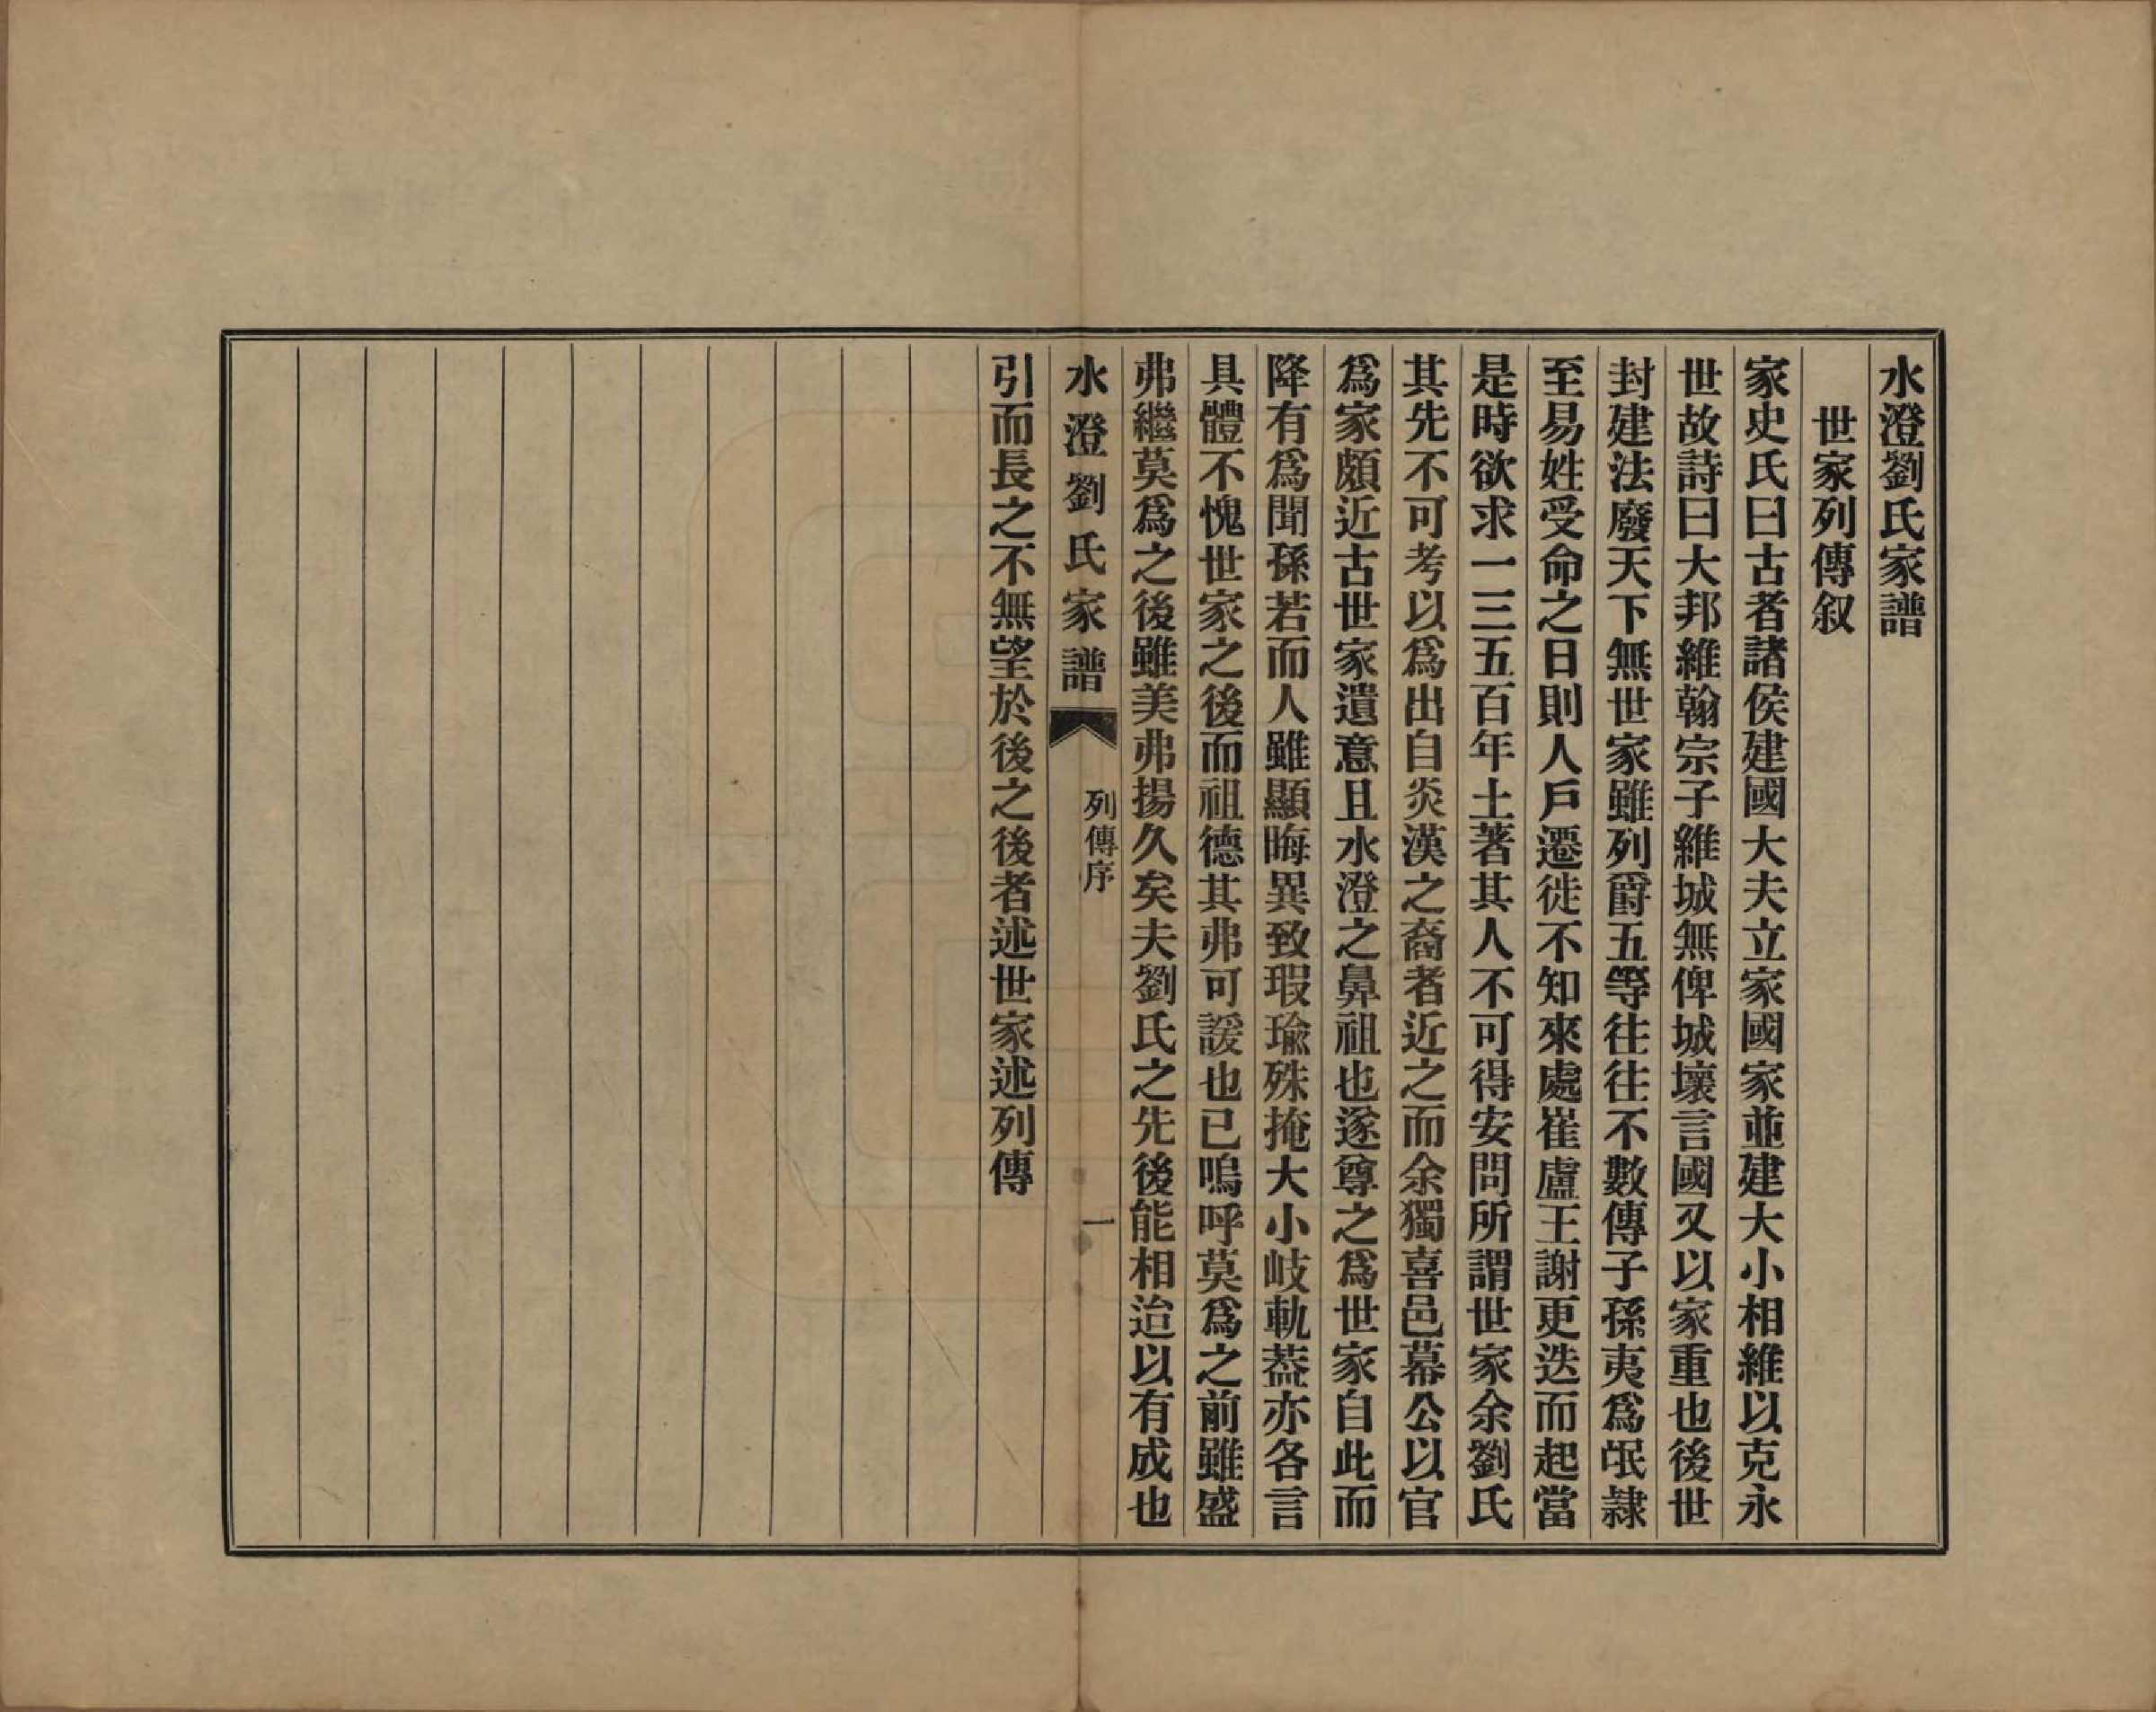 水澄劉氏家譜
世家列傳叙
家史氏曰古者諸侯建國大夫立家國家並建大小相維以克永
世故詩曰大邦維翰宗子維城無俾城壞言國又以家重也後世
封建法廢天下無世家雖列爵五等往往不數傳子孫夷爲氓隷
至易姓受命之日則人戶遷徙不知來處崔盧王謝更迭而起當
是時欲求一三五百年土著其人不可得安問所謂世家余劉氏
其先不可考以爲出自炎漢之裔者近之而余獨喜邑幕公以官
爲家頗近古世家遺意且水澄之鼻祖也遂尊之爲世家自此而
降有爲聞孫若而人雖顯晦異致瑕瑜殊掩大小岐軌葢亦各言
具體不愧世家之後而祖德其弗可諼也已嗚呼莫爲之前雖盛
弗繼莫爲之後雖美弗揚久矣夫劉氏之先後能相迨以有成也
水澄劉氏家譜
列傳序
一
引而長之不無望於後之後者述世家述列傳